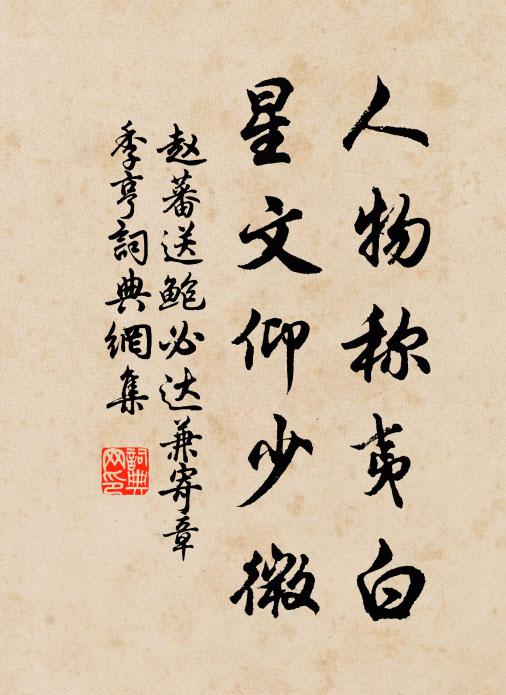 人物称夷白
星文仰少微
赵蕃送鲍必达兼寄章
季亨詞典網集
詞典網印